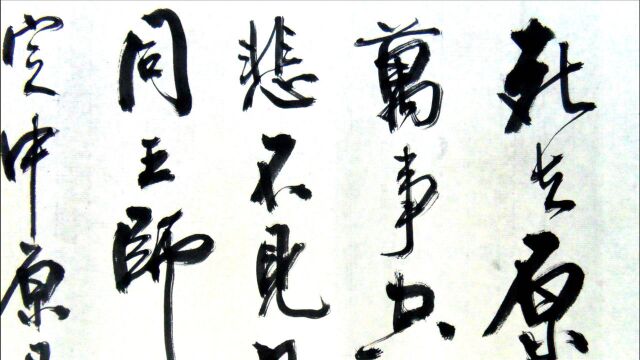 死去原
萬事空
悲不見
同王師
定中原